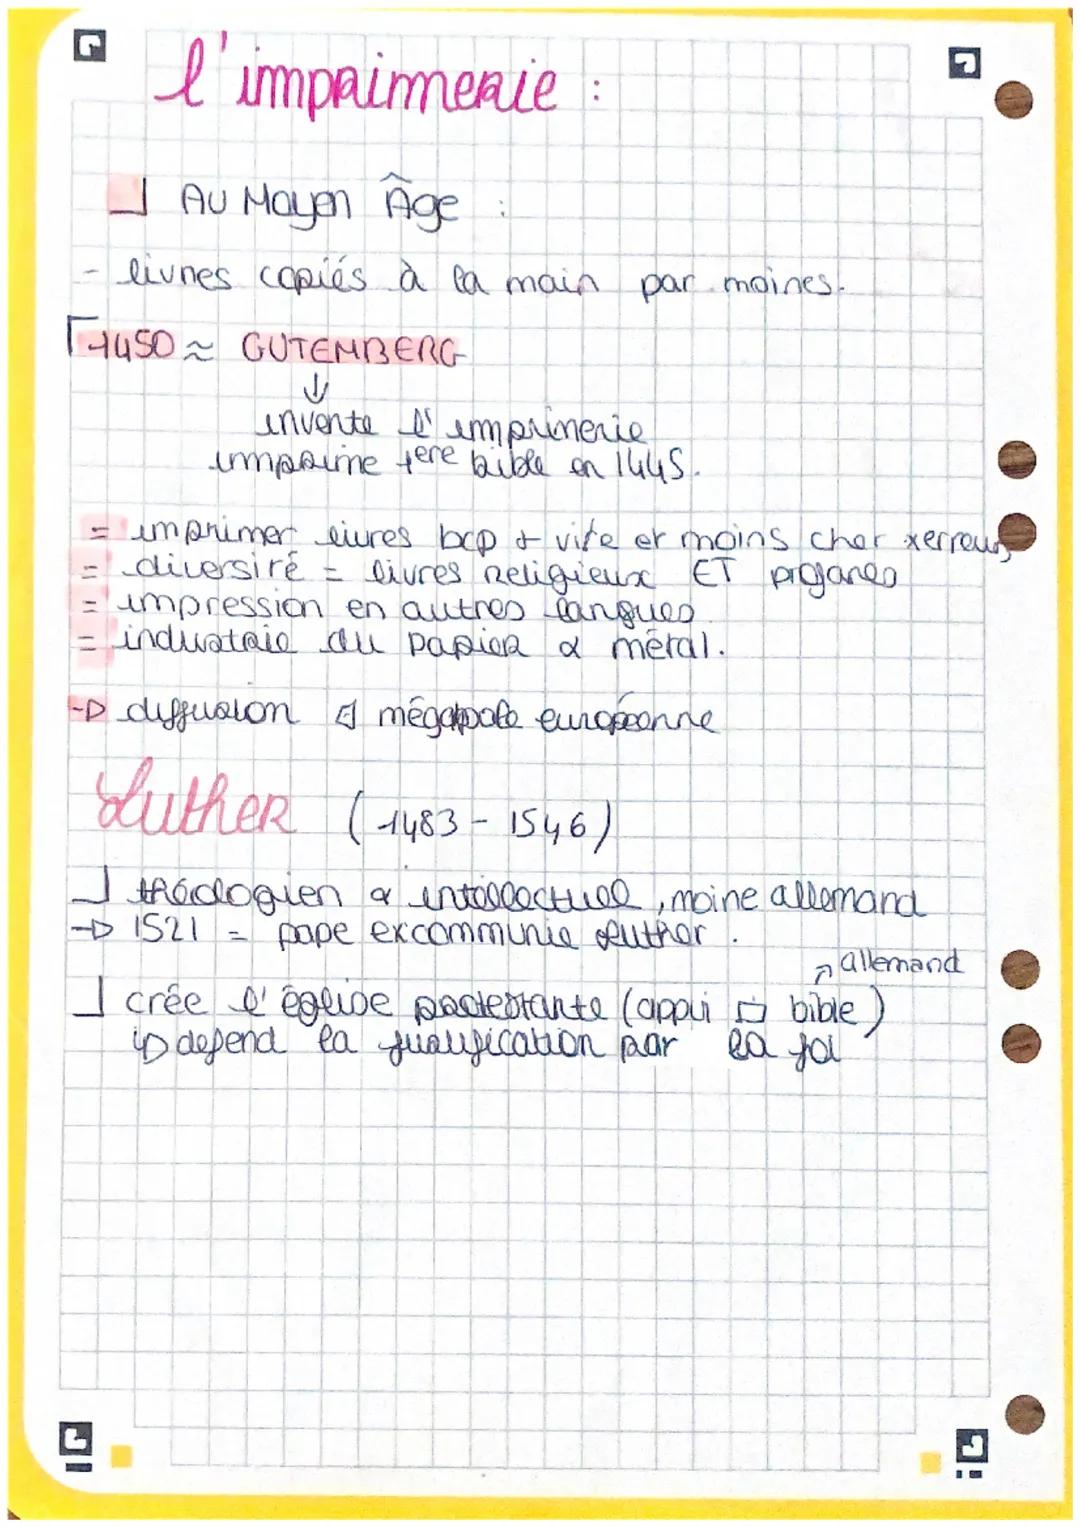 l'imprimerie :
Au Moyen Âge :
- livres copiés à la main par moines.
1450 ≈ GUTEMBERG
↓
invente l'imprimerie
imprime 1ere bible en 1445.
= imprimer livres bcp + vite et moins cher xerreurs
= diversité = livres religieux ET profanes
= impression en autres langues
= industrie du papier & métal.
-> diffusion mégapole européenne
Luther (1483 - 1546)
théologien & intellectuel, moine allemand
-> 1521 = pape excommunie Luther.
↗ allemand
crée l'église protestante (appui bible)
↳ defend la justification par la foi